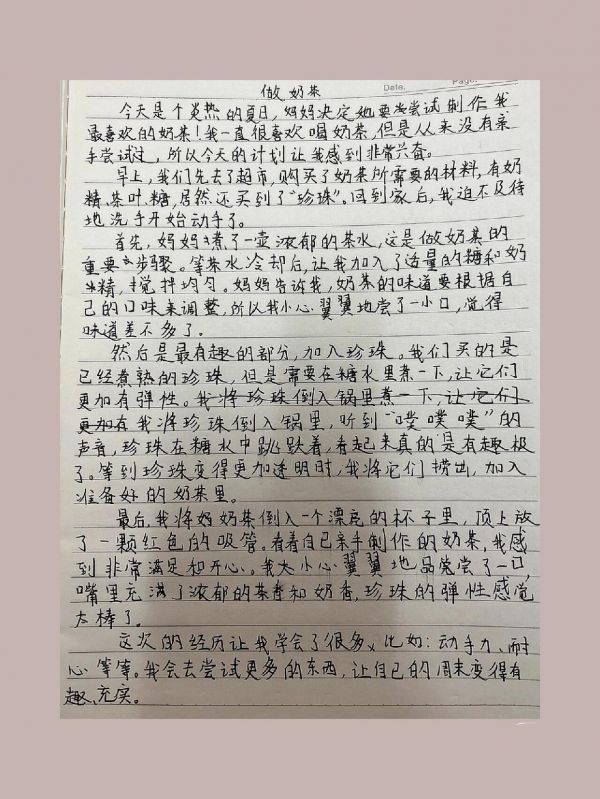 Date.
Page.
做奶茶
今天是个炎热的夏日，妈妈决定她要尝试制作我
最喜欢的奶茶！我一直很喜欢喝奶茶，但是从来没有亲
手尝试过，所以今天的计划让我感到非常兴奋。
早上，我们先去了超市，购买了奶茶所需要的材料，有奶
精、茶叶、糖，居然还买到了“珍珠”。回到家后，我迫不及待
地洗手开始动手了。
首先，妈妈煮了一壶浓郁的茶水，这是做奶茶的
重要步骤。等茶水冷却后，让我加入了适量的糖和奶
精，搅拌均匀。妈妈告诉我，奶茶的味道要根据自
己的口味来调整，所以我小心翼翼地尝了一小口，觉得
味道差不多了。
然后是最有趣的部分，加入珍珠。我们买的是
已经煮熟的珍珠，但是需要在糖水里煮一下，让它们
更加有弹性。我将珍珠倒入锅里煮一下，让它们
更加有我将珍珠倒入锅里，听到“噗噗噗”的
声音，珍珠在糖水中跳跃着，看起来真的是有趣极
了。等到珍珠变得更加透明时，我将它们捞出，加入
准备好的奶茶里。
最后，我将奶茶倒入一个漂亮的杯子里，顶上放
了一颗红色的吸管。看着自己亲手制作的奶茶，我感
到非常满足和开心。我小心翼翼地品尝了一口
嘴里充满了浓郁的茶香和奶香，珍珠的弹性感觉
太棒了。
这次的经历让我学会了很多，比如：动手力、耐
心等等。我会去尝试更多的东西，让自己的周末变得有
趣、充实。